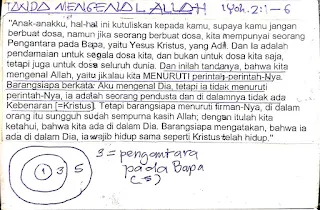 TANDA MENGENAL ALLAH 1Yoh. 2:1-6
"Anak-anakku, hal-hal ini kutuliskan kepada kamu, supaya kamu jangan
berbuat dosa, namun jika seorang berbuat dosa, kita mempunyai seorang
Pengantara pada Bapa, yaitu Yesus Kristus, yang Adil. Dan Ia adalah
pendamaian untuk segala dosa kita, dan bukan untuk dosa kita saja,
tetapi juga untuk dosa seluruh dunia. Dan inilah tandanya, bahwa kita
mengenal Allah, yaitu jikalau kita MENURUTI perintah-perintah-Nya.
Barangsiapa berkata: Aku mengenal Dia, tetapi ia tidak menuruti
perintah-Nya, ia adalah seorang pendusta dan di dalamnya tidak ada
Kebenaran [=Kristus]. Tetapi barangsiapa menuruti firman-Nya, di dalam
orang itu sungguh sudah sempurna kasih Allah; dengan itulah kita
ketahui, bahwa kita ada di dalam Dia. Barangsiapa mengatakan, bahwa ia
ada di dalam Dia, ia wajib hidup sama seperti Kristus telah hidup."
1 3 5 3 = pengantara
pada Bapa
(5)